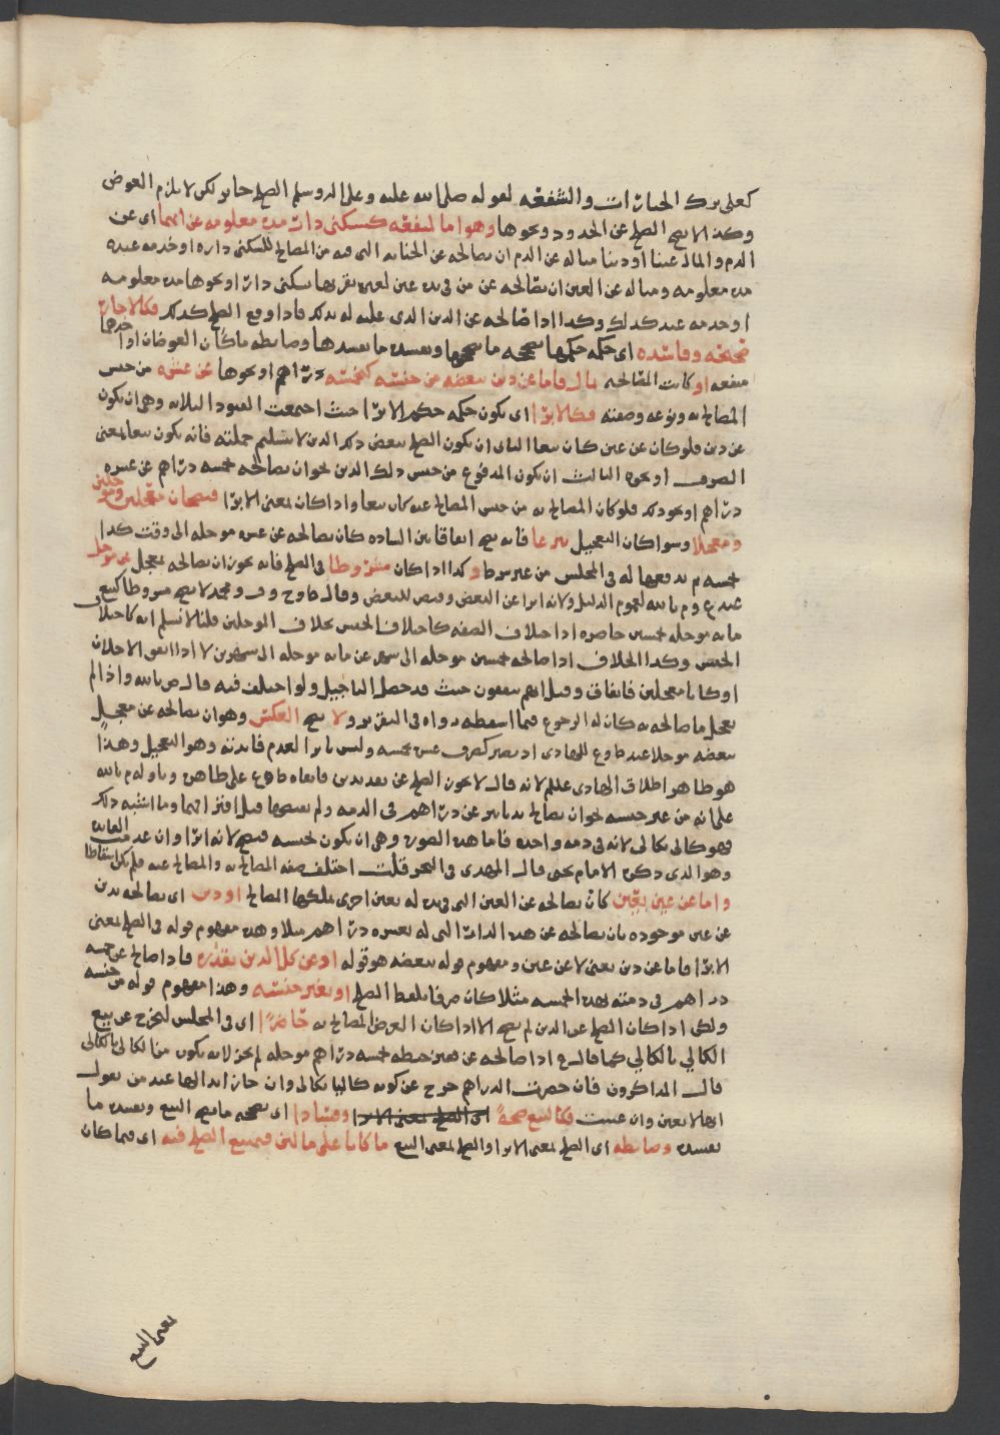 كعلى ترك الخيارات والشفعة لقوله صلى الله عليه وعلى اله وسلم الصلح جايز لكن لا يلزم العوض
وكذا لا يصح الصلح عن الحدود ونحوها وهو اما لمنفعة كسكنى دار مدة معلومة عن ايهما اى عن
الدم والمال عينا او دينا مثاله عن الدم ان يصالحه عن الجناية التى فيه من المصالح للسكنى داره او خدمة عبده
مدة معلومة ومثاله عن العين ان يصالحه عن من فى يده عين لغيره يقر بها بسكنى دار او نحوها مدة معلومة
او خدمة عبد كذلك وكذا اذا صالحه عن الدين الذى عليه له بذلك فاذا وقع الصلح كذلك فكالاجارة
صحيحه وفاسده اى حكمه حكمها يصححه ما يصححها ويفسده ما يفسدها وضابطه ما كان العوضان او احدهما
منفعه او كانت المصالحه بمال فاما عن دين ببعضه من جنسه كخمسة دراهم او نحوها عن عشره من جنس
المصالح به ونوعه وصفته فكالابرا اى يكون حكمه حكم الابرا حيث اجتمعت القيود الثلاثه وهى ان يكون
عن دين فلو كان عن عين كان بيعا الثانى ان يكون الصلح ببعض ذلك الدين لا بتسليم جملته فانه يكون بيعا بمعنى
الصرف او نحوه الثالث ان يكون المدفوع من جنس ذلك الدين نحو ان يصالحه بخمسة دراهم عن عشره
دراهم او نحو ذلك فلو كان المصالح به من جنس المصالح عنه كان بيعا واذا كان بمعنى الابرا فيصحان مؤجلين ومعجلين
ومعجلا وسوا كان التعجيل تبرعا فانه يصح اتفاقا بين الساده كان يصالحه عن عشره موجله الى وقت كذا
بخمسه ثم يدفعها له فى المجلس من غير شرط وكذا اذا كان مشروطا فى الصلح فانه يجوز ان يصالحه بمعجل عن مؤجل
عند ع وم بالله لعموم الدليل ولانه ابرا عن البعض وقبض للبعض وقال ط وح وف ومحمد لا يصح مشروطا كبيع
مايه موجله بخمسين حاضره اذ اختلاف الصفه كاختلاف الجنس بخلاف الموجلين قلنا لا نسلم انه كاختلاف
الجنس وكذا الخلاف اذا صالحه بخمسين موجله الى شهر عن مايه موجله الى شهرين لا اذا اتفق الاجلان
او كانا معجلين فاتفاق وقيل انهم متفقون حيث قد حصل التاجيل ولو اختلف فيه قال ص بالله واذا لم
يعجل ما صالحه به كان له الرجوع فيما اسقطه رواه فى التقرير ولا يصح العكس وهو ان يصالحه عن معجل
ببعضه موجلا عند ط وع للهادى اذ يصير كصرف عشره بخمسه وليس بابرا لعدم فائدته وهو التعجيل وهذا
هو ظاهر اطلاق الهادى عللم لانه قال لا يجوز الصلح عن نقد بدين فابقاه ط وع على ظاهره وتاوله م بالله
على انه من غير جنسه نحو ان يصالح بدنانير عن دراهم فى الذمه ولم يقبضها قبل افتراقهما وما اشبه ذلك
فهو كالى بكالى لانه فى ذمه واحده فاما هذه الصوره وهى ان يكون بجنسه فيصح لانه ابرا وان عدمت الفايده
وهو الذى ذكره الامام يحيى قال المهدى فى البحر قلت اختلف صفه المصالح به والمصالح عنه فلم يكن اسقاطا
واما عن عين بعين كان يصالحه عن العين التى فى يده له بعين اخرى يملكها المصالح او دين اى يصالحه بدين
عن عين موجوده بان يصالحه عن هذه الدار التى له بعشره دراهم مثلا وهذه مفهوم قوله فى الصلح بمعنى
الابرا فاما عن دين يعنى لا عن عين ومفهوم قوله ببعضه هو قوله او عن كل الدين بقدره فاذا صالح عن خمسه
دراهم فى ذمته بهذه الخمسه مثلا كان صرفا بلفظ الصلح او بغير جنسه وهذا مفهوم قوله من جنسه
ولكن اذا كان الصلح عن الدين لم يصح الا اذا كان العوض المصالح به حاضرا اى فى المجلس ليخرج عن بيع
الكالي بالكالي كما قال ع اذا صالحه عن قفيز حنطه بخمسه دراهم موجله لم يجز لانه يكون من الكالى بالكالى
قال المذاكرون فان حضرت الدراهم خرج عن كونه كاليا بكالى وان جاز ابدالها عند من يقول
انها لا تعين وان عينت فكالبيع صحةً اى الصلح بمعنى الابرا وفسادا اى يصححه ما يصحح البيع ويفسده ما
يفسده وضابطه اى الصلح بمعنى الابرا والصلح بمعنى البيع ما كانا على مالين فبيع الصلح فيه اى فيما كان
بمعنى البيع